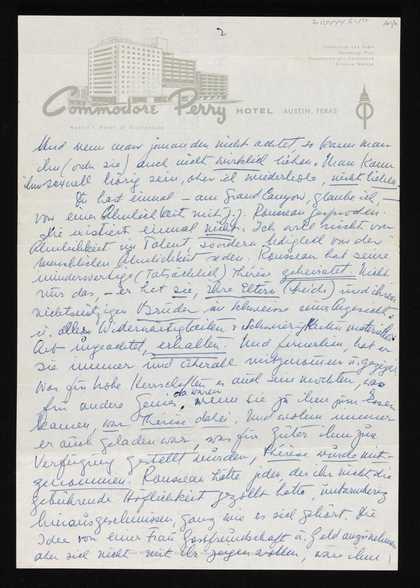 2
Commodore Perry HOTEL AUSTIN, TEXAS
Und wenn man jemanden nicht achtet, so kann man
ihn (oder sie) auch nicht wirklich lieben. Man kann
ihm sexuell hörig sein, aber ich wiederhole, nicht lieben.
Du hast einmal – am Grand Canyon, glaube ich, –
von einer Ähnlichkeit mit J. J. Rousseau gesprochen.
Die existiert einmal nicht. Ich will nicht von
Ähnlichkeit im Talent, sondern lediglich von der
menschlichen Ähnlichkeit reden. Rousseau hat seine
minderwertige (tatsächlich) Thérèse geheiratet. Nicht
nur das, – er hat sie, ihre Eltern (beide) und ihren
nichtsnutzigen Brüder, in
u. allen Widerwärtigkeiten u. Schwierigkeiten materieller
Art ungeachtet, erhalten. Und fernerhin, hat er
sie immer und überall mitgenommen u. gezeigt.
Was für hohe Herrschaften es auch sein mochten, was
für andere Genies da waren, wenn sie zu ihm zum Essen
kamen, war Thérèse dabei. Und wohin immer
er auch geladen war, was für Güter ihm zur
Verfügung gestellt wurden, Thérèse wurde mit-
genommen. Rousseau hätte jeden, der ihr nicht die
gebührende Höflichkeit gezollt hätte,
hinausgeschmissen, ganz wie es sich gehört. Die
Idee von einer Frau Gastfreundschaft u. Geld anzunehmen
aber sich nicht mit ihr zeigen wollen, wäre ihm